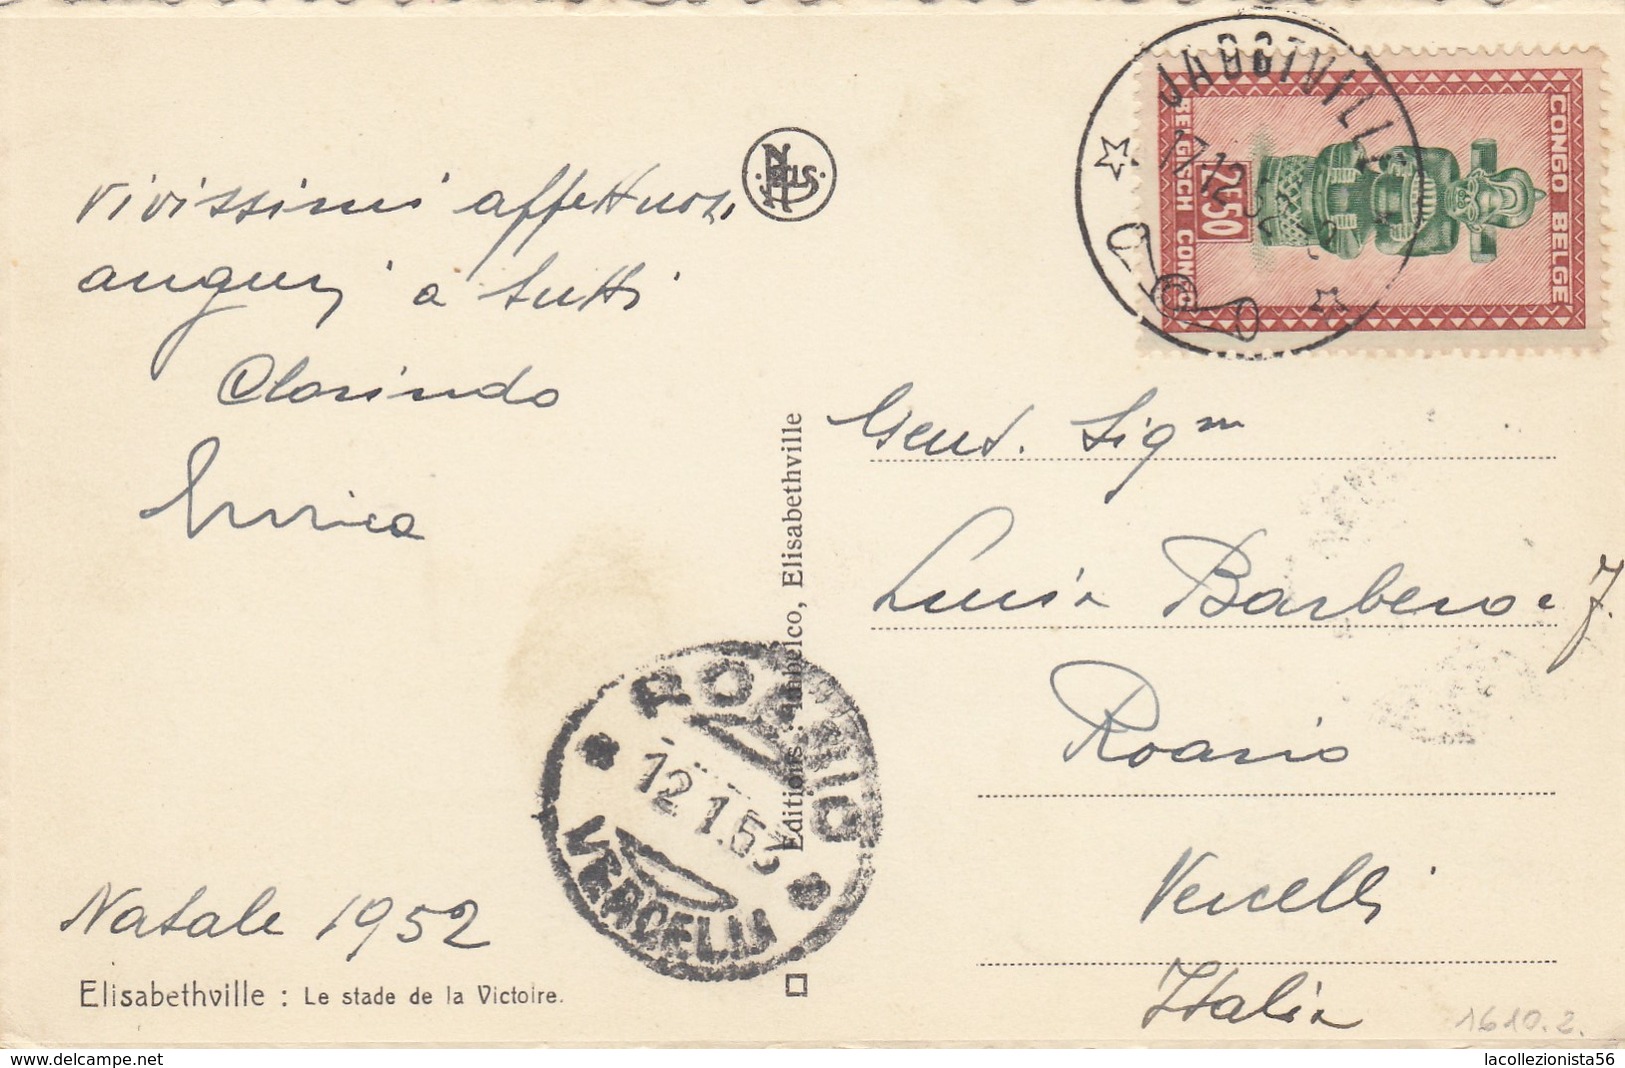 JADOTVILLE
17.12.52
CONGO BELGE
BELGISCH CONGO
2F50
NELS
Vivissimi affettuosi
auguri a tutti
Clorindo
Enrica
Natale 1952
Elisabethville : Le stade de la Victoire.
ROASIO
12.1.53
VERCELLI
Elisabethville
Editions
Gent. Sigra
Lucia Barbero e f.
Roasio
Vercelli
Italia
1610.2.
delcampe.net
lacollezionista56